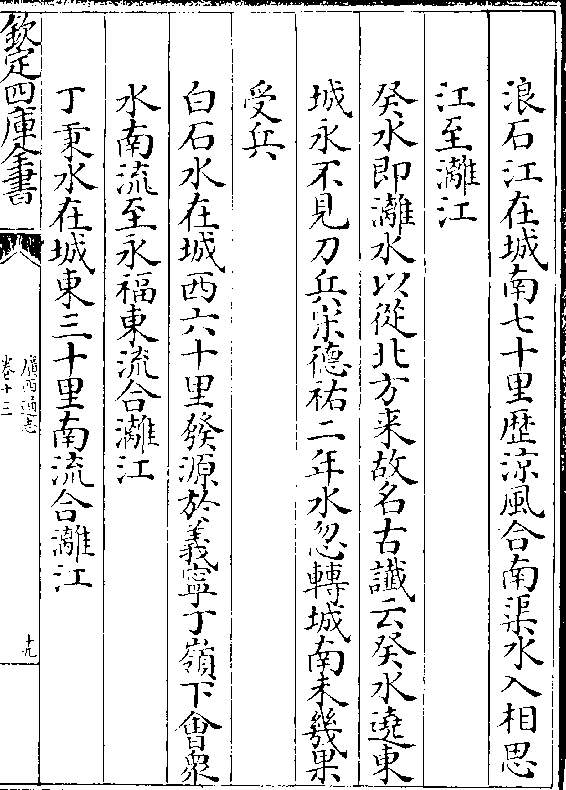 浪石江在城南七十里歴涼風合南渠水入相思
江至灕江
癸水即灕水以從北方来故名古讖云癸水遶東
城永不見刀兵宋德祐二年水忽轉城南未幾果
受兵
白石水在城西六十里發源於義寧丁嶺下會衆
水南流至永福東流合灕江
丁秉水在城東三十里南流合灕江
欽定四庫全書
廣西通志
卷十三
十九